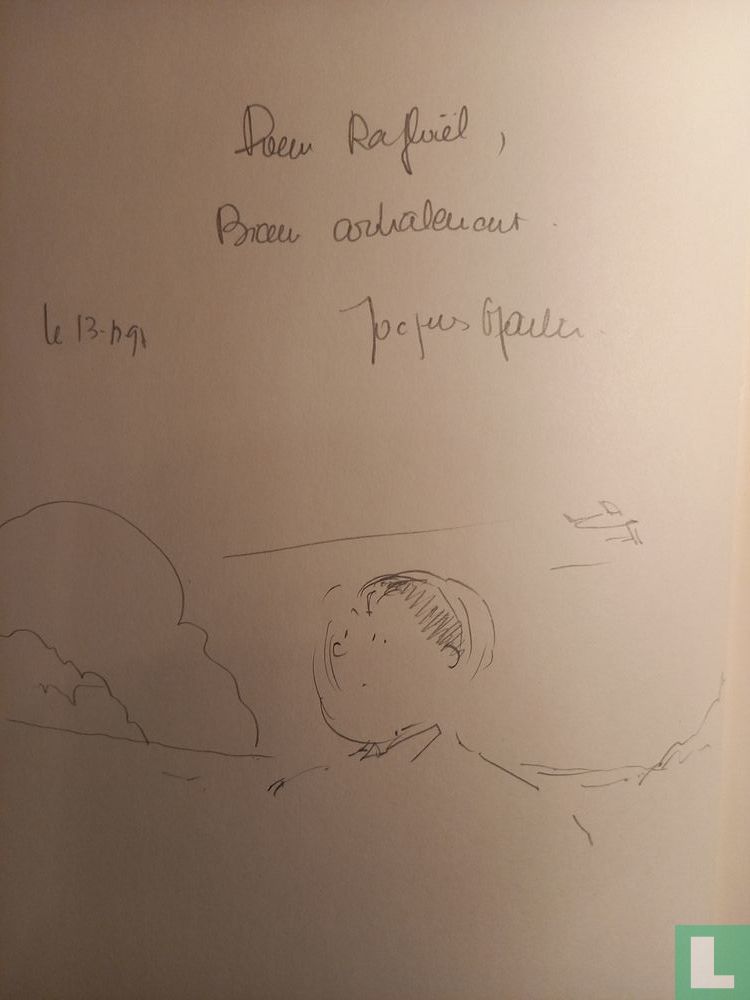 Pour Raphaël,
Bien cordialement.
le 13-
Jacques Martin.
L